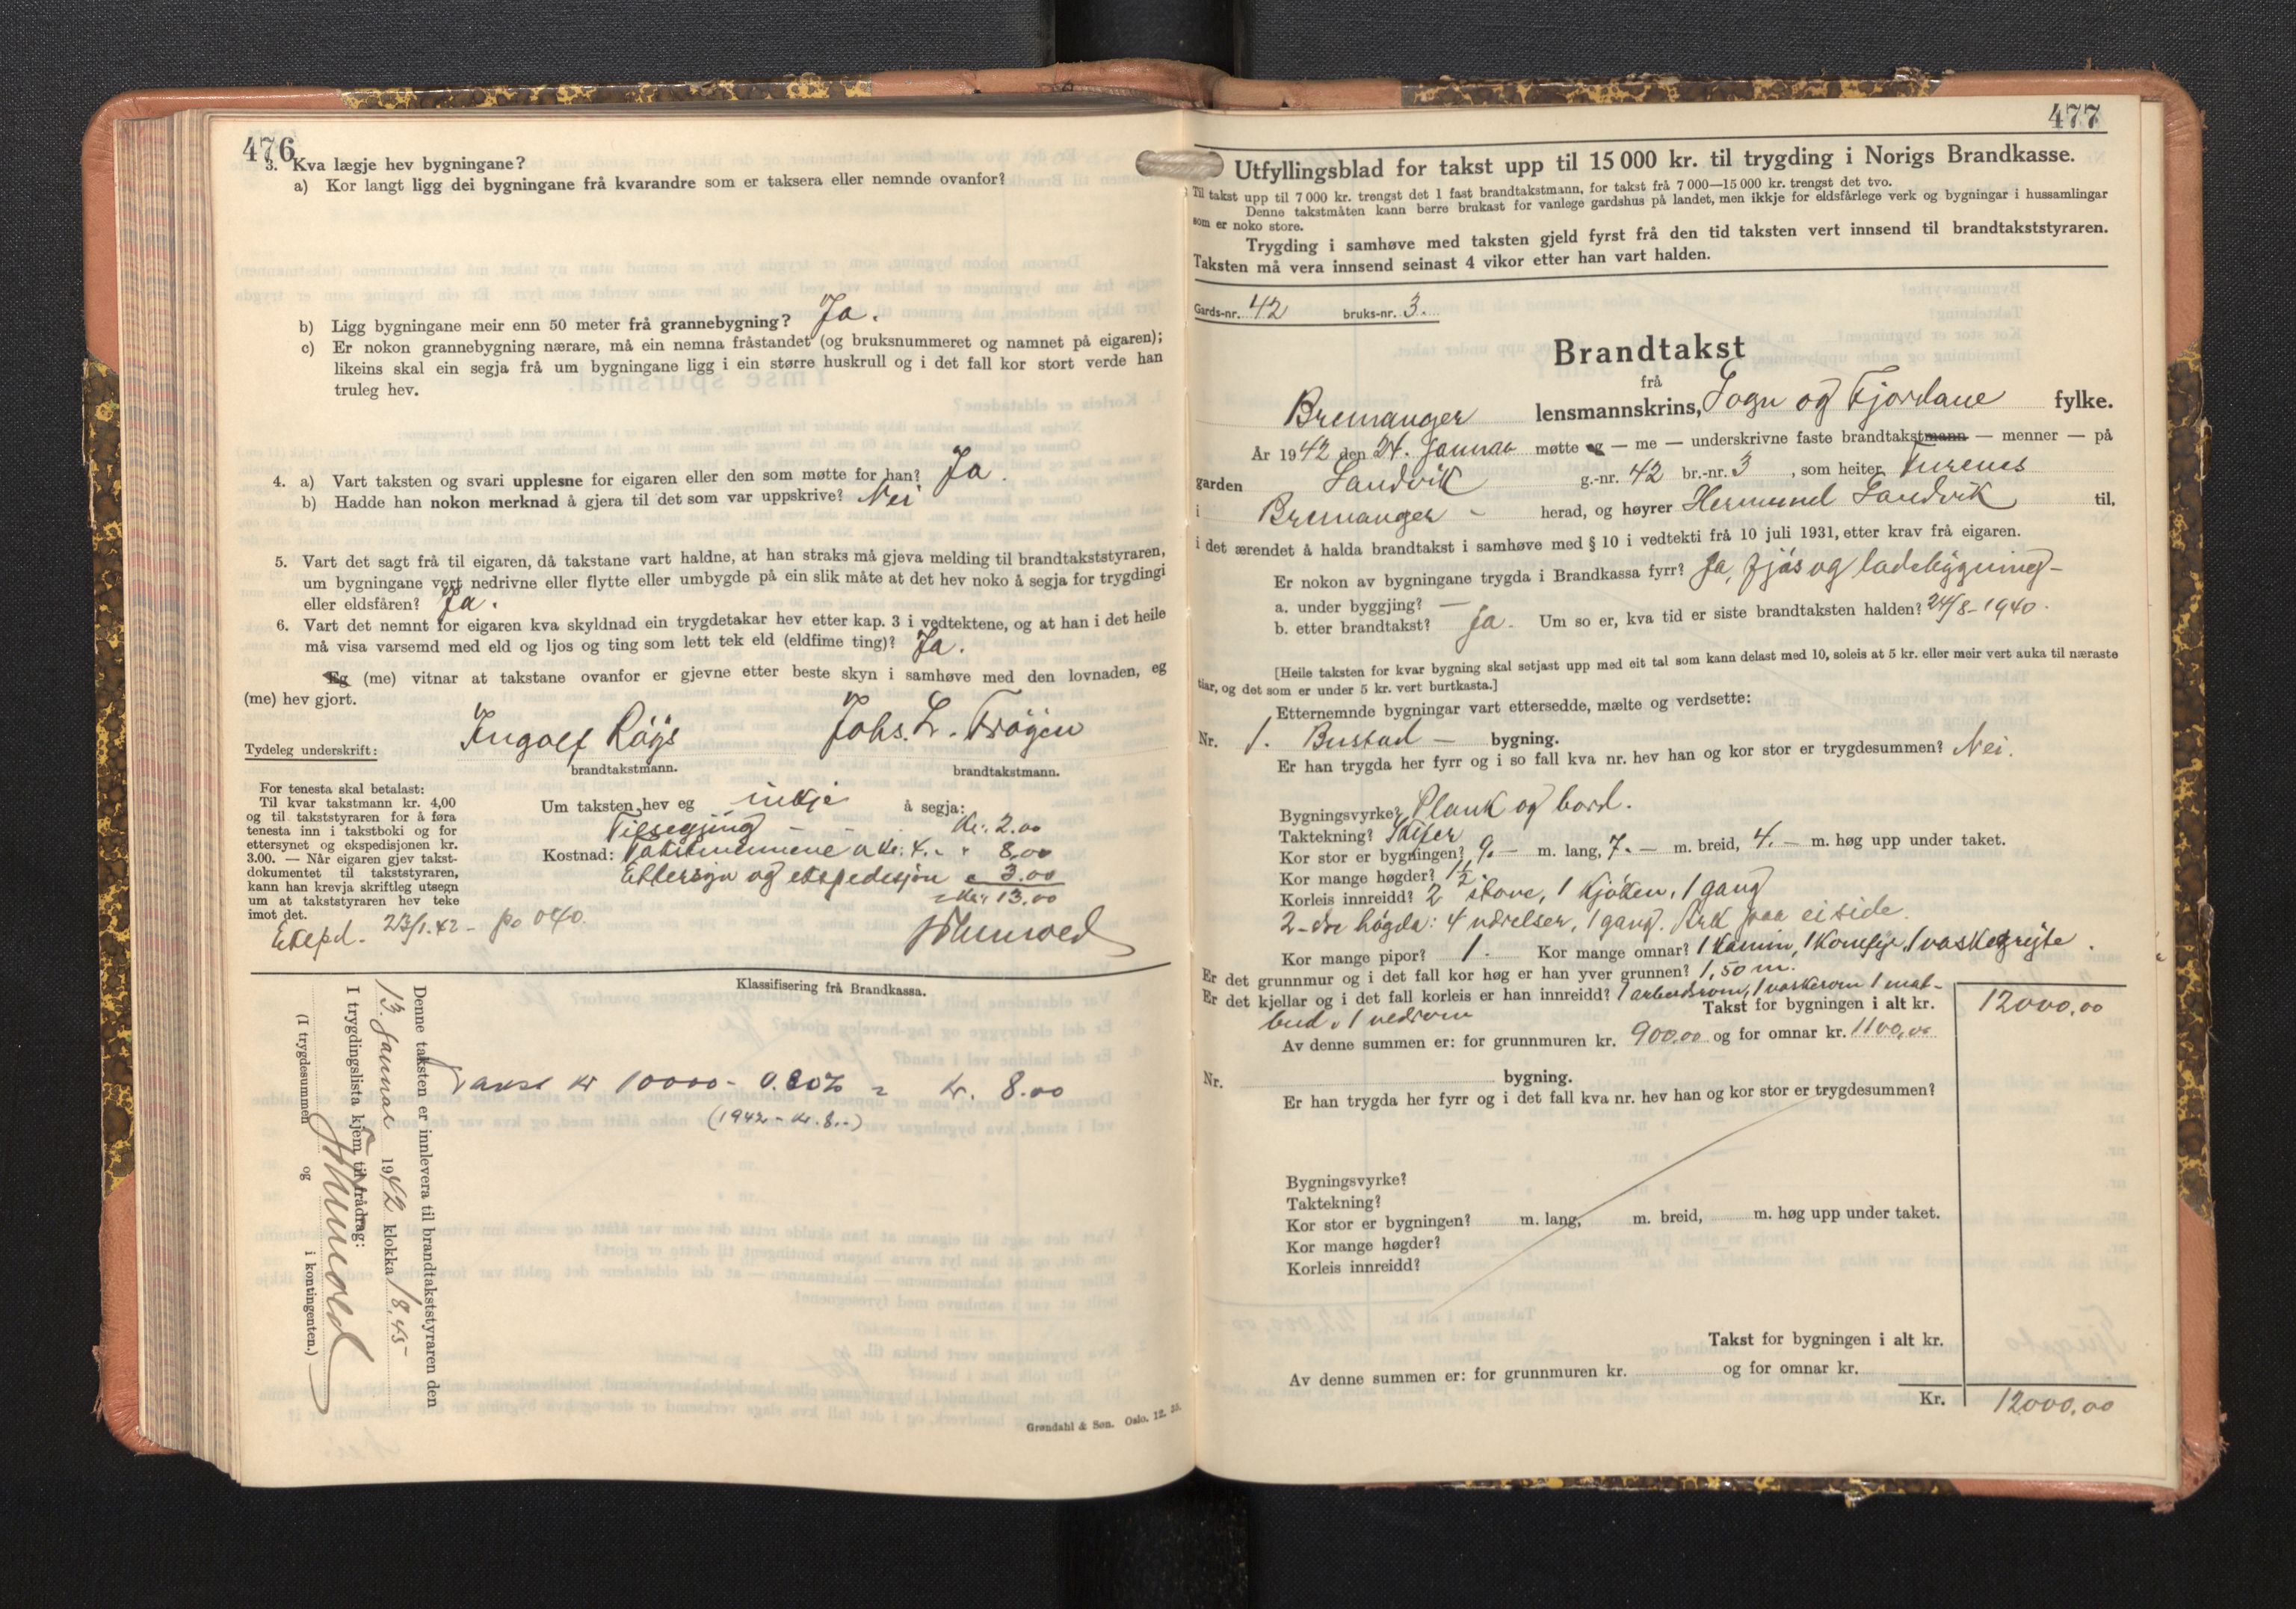 476
3. Kva lægje hev bygningane?
a) Kor langt ligg dei bygningane frå kvarandre som er taksera eller nemnde ovanfor?
b) Ligg bygningane meir enn 50 meter frå grannebygning? Ja.
c) Er nokon grannebygning nærare, må ein nemna fråstandet (og bruksnummeret og namnet på eigaren);
likeins skal ein segja frå um bygningane ligg i ein større huskrull og i det fall kor stort verde han
truleg hev.
4. a) Vart taksten og svari upplesne for eigaren eller den som møtte for han? Ja.
b) Hadde han nokon merknad å gjera til det som var uppskrive? Nei
5. Vart det sagt frå til eigaren, då takstane vart haldne, at han straks må gjeva melding til brandtakststyraren,
um bygningane vert nedrivne eller flytte eller umbygde på ein slik måte at det hev noko å segja for trygdingi
eller eldsfåren? Ja.
6. Vart det nemnt for eigaren kva skyldnad ein trygdetakar hev etter kap. 3 i vedtektene, og at han i det heile
må visa varsemd med eld og ljos og ting som lett tek eld (eldfime ting)? Ja.
Eg (me) vitnar at takstane ovanfor er gjevne etter beste skyn i samhøve med den lovnaden, eg
(me) hev gjort.
Tydeleg underskrift: Ingolf Røys Johs. L. Frøyen
brandtakstmann. brandtakstmann.
For tenesta skal betalast:
Til kvar takstmann kr. 4,00
og til takststyraren for å føra
tenesta inn i takstboki og for
ettersynet og ekspedisjonen kr.
3.00. — Når eigaren gjev takst-
dokumentet til takststyraren,
kann han krevja skriftleg utsegn
um at takststyraren hev teke
imot det.
Um taksten hev eg inkje å segja:
Tilsegjing - - kr. 2.00
Kostnad: Takstmennene a kr. 4.- " 8,00
Ettersyn og ekspedisjon " 3.00
kr. 13.00
Ekspd. 23/1.42 - po 040.
Klassifisering frå Brandkassa.
Takst kr 10000 - 0.80% = kr. 8.00
(1942 - kr. 8.-)
Denne taksten er innlevera til brandtakststyraren den
13. Januar 1942 klokka 18,45-
I trygdingslista kjem til frådrag:
(I trygdesummen og i kontingenten.)
Grøndahl & Søn. Oslo. 12. 35.
477
Utfyllingsblad for takst upp til 15 000 kr. til trygding i Norigs Brandkasse.
Til takst upp til 7 000 kr. trengst det 1 fast brandtakstmann, for takst frå 7 000—15 000 kr. trengst det tvo.
Denne takstmåten kann berre brukast for vanlege gardshus på landet, men ikkje for eldsfårlege verk og bygningar i hussamlingar
som er noko store.
Trygding i samhøve med taksten gjeld fyrst frå den tid taksten vert innsend til brandtakststyraren.
Taksten må vera innsend seinast 4 vikor etter han vart halden.
Gards-nr. 42 bruks-nr. 3.
Brandtakst
frå
Bremanger lensmannskrins, Sogn og Fjordane fylke.
År 1942 den 24. Januar møtte eg — me — underskrivne faste brandtakstmann — menner — på
garden Sandvik g.-nr. 42 br.-nr. 3, som heiter Furenes
i Bremanger - herad, og høyrer Hermund Sandvik til,
i det ærendet å halda brandtakst i samhøve med § 10 i vedtekti frå 10 juli 1931, etter krav frå eigaren.
Er nokon av bygningane trygda i Brandkassa fyrr? Ja, fjøs og ladebygning-
a. under byggjing? —
b. etter brandtakst? Ja. Um so er, kva tid er siste brandtaksten halden? 24/8-1940.
[Heile taksten for kvar bygning skal setjast upp med eit tal som kann delast med 10, soleis at 5 kr. eller meir vert auka til næraste
tiar, og det som er under 5 kr. vert burtkasta.]
Etternemnde bygningar vart ettersedde, mælte og verdsette:
Nr. 1. Bustad — bygning.
Er han trygda her fyrr og i so fall kva nr. hev han og kor stor er trygdesummen? Nei.
Bygningsvyrke? Plank og bord.
Taktekning? Skifer
Kor stor er bygningen? 9.— m. lang, 7.— m. breid, 4.— m. høg upp under taket.
Kor mange høgder? 1½
Korleis innreidd? 2 stove, 1 kjøken, 1 gang
2-dre høgda: 4 værelser, 1 gang. Ark paa ei side.
Kor mange pipor? 1. Kor mange omnar? 1 Kamin, 1 Komfyr, 1 vaskegrejte.
Er det grunnmur og i det fall kor høg er han yver grunnen? 1,50 m.
Er det kjellar og i det fall korleis er han innreidd? 1 arbeidsrom, 1 vaskerom 1 mat-
bud, 1 vedrom Takst for bygningen i alt kr. 12000,00
Av denne summen er: for grunnmuren kr. 900,00 og for omnar kr. 1100,00
Nr. bygning.
Er han trygda her fyrr og i det fall kva nr. hev han og kor stor er trygdesummen?
Bygningsvyrke?
Taktekning?
Kor stor er bygningen? m. lang, m. breid, m. høg upp under taket.
Kor mange høgder?
Korleis innreidd?
Takst for bygningen i alt kr.
Av denne summen er: for grunnmuren kr. og for omnar kr.
Kr. 12000,00